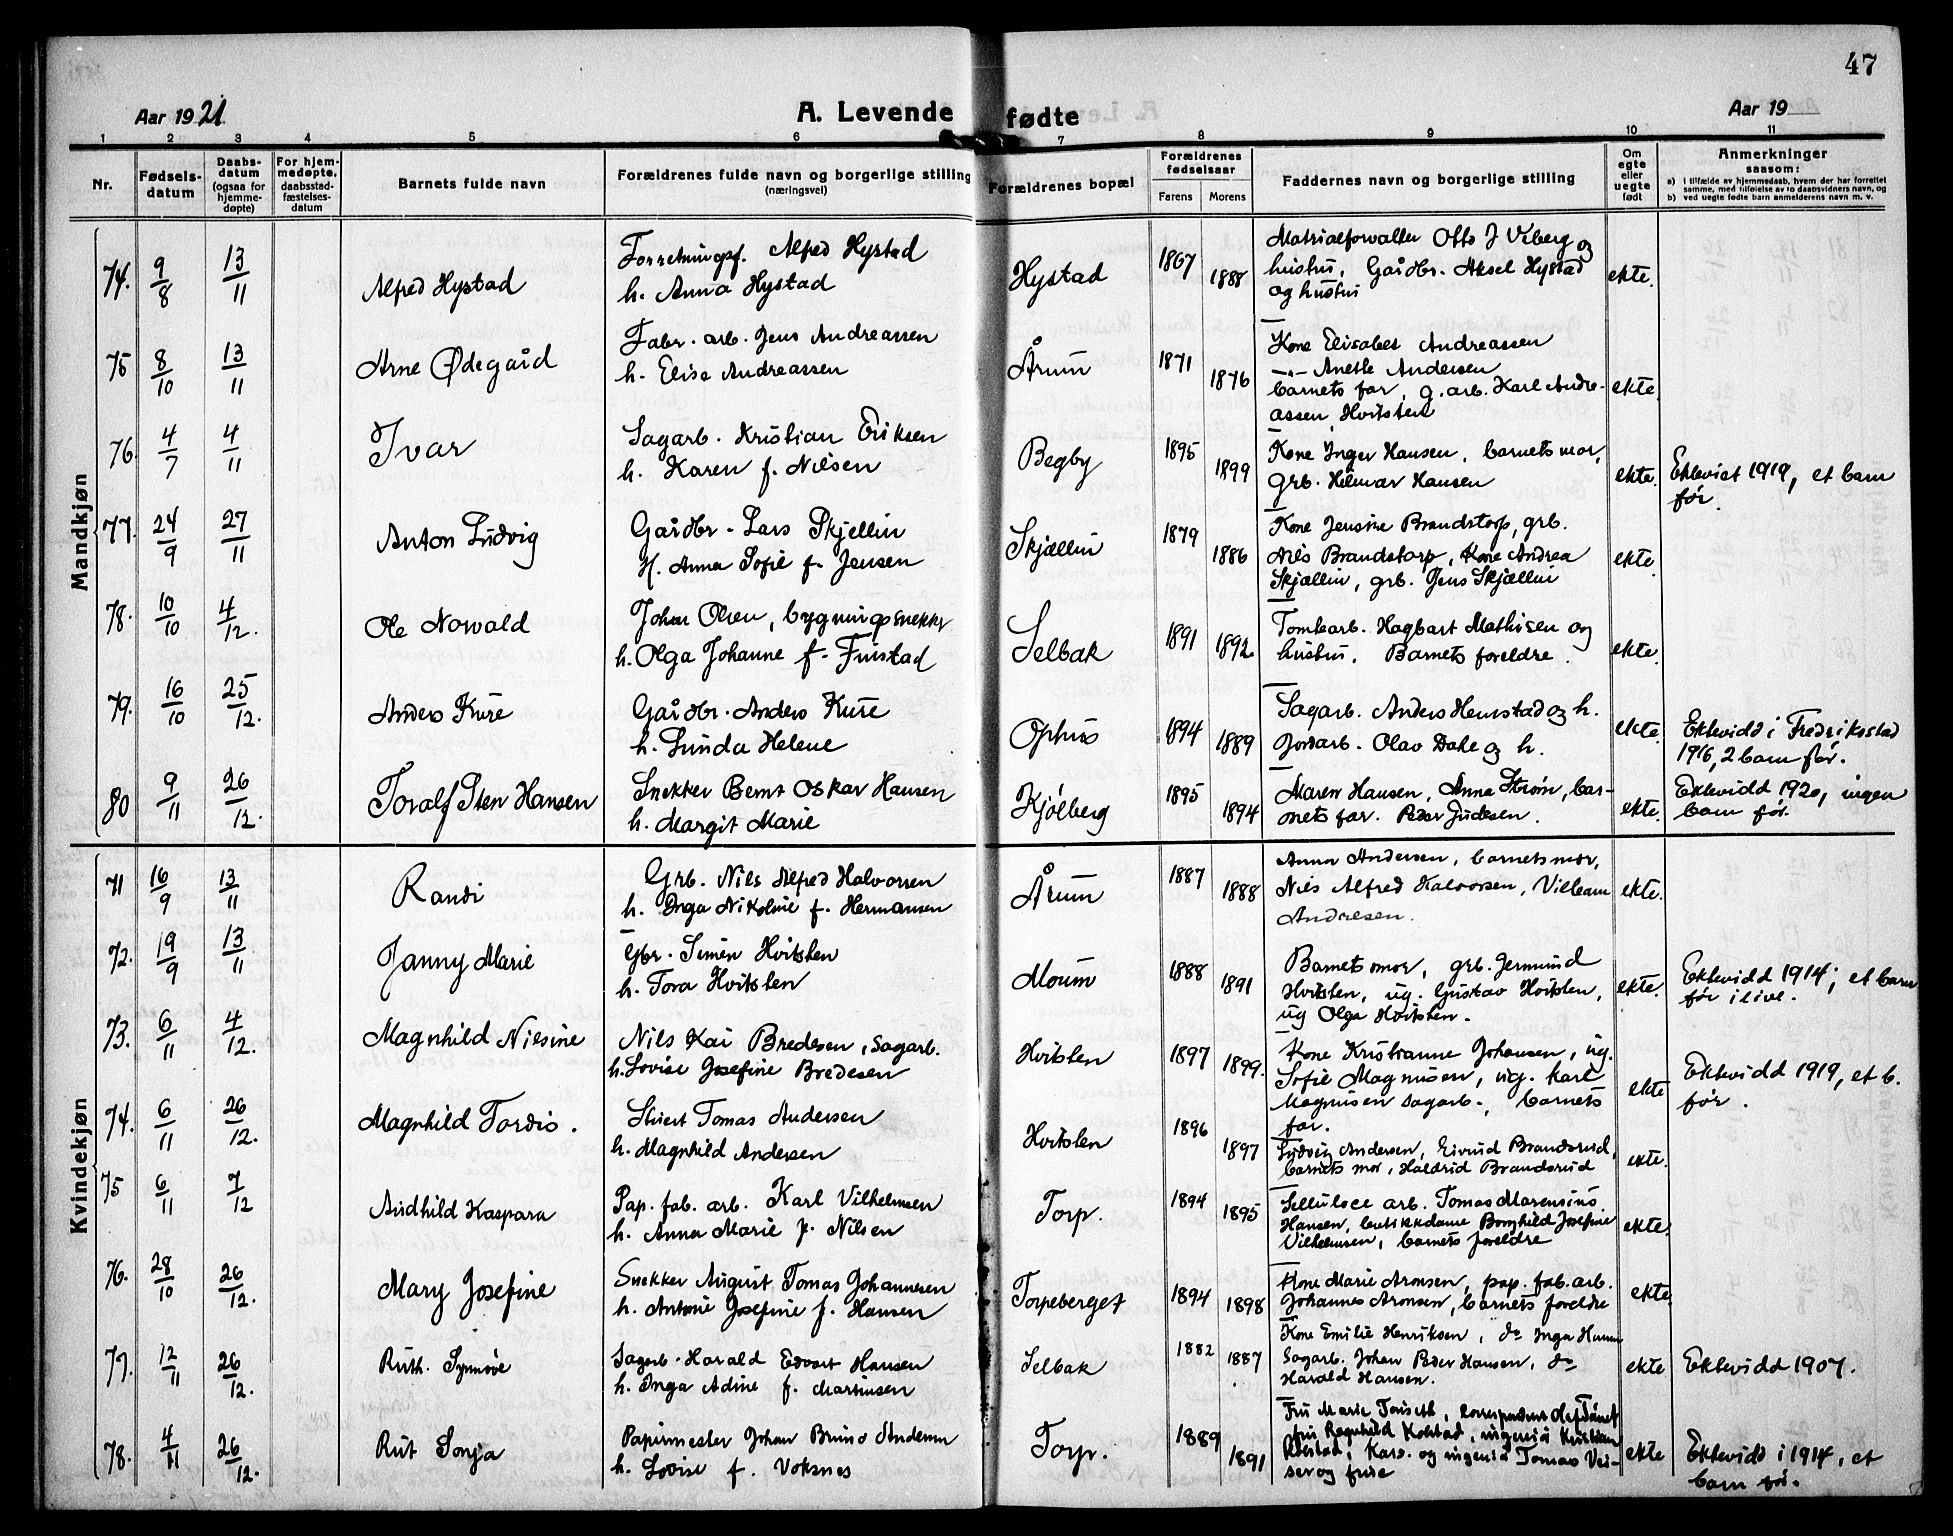 47
Aar 1921
A. Levende fødte
Aar 19
1 2 3 4 5 6 7 8 9 10 11
Nr.
Fødsels-
datum
Daabs-
datum
(ogsaa for
hjemme-
døpte)
For hjem-
medøpte,
daabsstad-
fæstelses-
datum
Barnets fulde navn
Forældrenes fulde navn og borgerlige stilling
(næringsvei)
Forældrenes bopæl
Forældrenes
fødselsaar
Farens Morens
Faddernes navn og borgerlige stilling
Om
egte
eller
uegte
født
Anmerkninger
saasom:
a) i tilfælde av hjemmedaab, hvem der har forrettet
samme, med tilføielse av to daabsvidners navn, og
b) ved uegte fødte barn anmelderens navn m. v.
Mandkjøn
74. 9/8 13/11 Alfred Hystad
Forretningsf. Alfred Hystad
h. Anna Hystad
Hystad 1867 1888
Matrialforvalter Otto J Viberg og
hustru, Gårdbr. Aksel Hystad
og hustru
ekte.
75 8/10 13/11 Arne Ødegård
Fabr. arb. Jens Andreassen
h. Elise Andreassen
Årum 1871 1876
Kone Elisabet Andreassen
—"— Anette Andersen
barnets far, g.arb. Karl Andre-
assen, Hvitsten
ekte.
76. 4/7 4/11 Ivar
Sagarb. Kristian Eriksen
h. Karen f. Nilsen
Begby 1895 1899
Kone Inger Hansen, barnets mor,
grb. Hilmar Hansen
ekte.
Ektevict 1919, et barn
før.
77. 24/9 27/11 Anton Ludvig
Gårdbr. Lars Skjellin
H. Anna Sofie f. Jensen
Skjællin 1879 1886
Kone Jensine Brandstorp, grb.
Nils Brandstorp, Kone Andrea
Skjællin, grb. Jens Skjællin
ekte.
78. 10/10 4/12. Ole Norvald
Johan Olsen, bygningssnekker
h. Olga Johanne f. Finstad
Selbak 1891 1892.
Tomtearb. Hagbart Mathisen og
hustru. Barnets foreldre.
ekte.
79. 16/10 25/12. Anders Kure
Gårdbr. Anders Kure
h. Lunda Helene
Ophus 1894 1889
Sagarb. Anders Henstad og h.
Jordarb. Olav Dahe og h.
ekte.
Ektevidd i Fredriksstad
1916, 2 barn før.
80 9/11 26/12. Toralf Sten Hansen
Snekker Bernt Oskar Hansen
h. Margit Marie
Kjølberg 1895 1894
Maren Hansen, Anna Strøm, bar-
nets far. Peder Judesen.
ekte.
Ektevidd 1920, ingen
barn før.
Kvindekjøn
71 16/9 13/11 Randi
Grb. Nils Alfred Halvorsen
h. Inga Nikoline f. Hermansen
Årum 1887 1888
Anna Andersen, barnets mor,
Nils Alfred Halvorsen, Villeam
Andresen.
ekte.
72. 19/9 13/11 Janny Marie
Gbr. Simen Hvitsten
h. Tora Hvitsten
Moum 1888 1891
Barnets mor, grb. Jermund
Hvitsten, ug. Gustav Hvitsten,
ug Olga Hvitsten.
ekte.
Ektevidd 1914; et barn
før i live.
73. 6/11 4/12. Magnhild Nilsine
Nils Kai Bredesen, Sagarb.
h. Lovise Josefine Bredesen
Hvitsten 1897 1899.
Kone Kristianne Johansen, ug.
Sofie Magnusen, ug. Karl
Magnusen sagarb., barnets
far.
ekte
Ektevidd 1919, et b.
før.
74. 6/11 26/12. Magnhild Tordis.
Stuert Tomas Andersen
h. Magnhild Andersen
Hvitsten 1896 1897
Ludvig Andersen, Eivind Brandsrud,
barnets mor, Haldrid Brandsrud
ekte.
75 6/11 7/12 Audhild Kaspara
Pap. fab. arb. Karl Vilhelmsen
h. Anna Marie f. Nilsen
Torp. 1894 1895
Selluloce arb. Tomas Marensius
Hansen, butikkdame Borghild Josefine
Vilhelmsen, barnets foreldre
ekte.
76. 28/10 26/12. Mary Josefine
Snekker August Tomas Johannesen
h. Antonie Josefine f. Hansen
Torpeberget 1894 1898
Kone Marie Aronsen, pap. fab. arb.
Johannes Aronsen, barnets foreldre
ekte.
77. 12/11 26/12. Ruth. Synnøve
Sagarb. Harald Edvart Hansen
h. Inga Adine f. Martinsen
Selbak 1882 1887
Kone Emilie Henriksen, do Inga
Sagarb. Johan Peder Hansen, do
Harald Hansen.
ekte
Ektevidd 1907.
78. 4/11 26/12. Rut Sonja
Papirmester Johan Bruno Andersen
h. Lovise f. Voksnes
Torp. 1889 1891
Fru Marie
fru Ragnhild Kolstad, ingeniør Kristian
Kolstad, og ingeniør Tomas
ser og frue
ekte
Ektevidd i 1914, et
barn før.